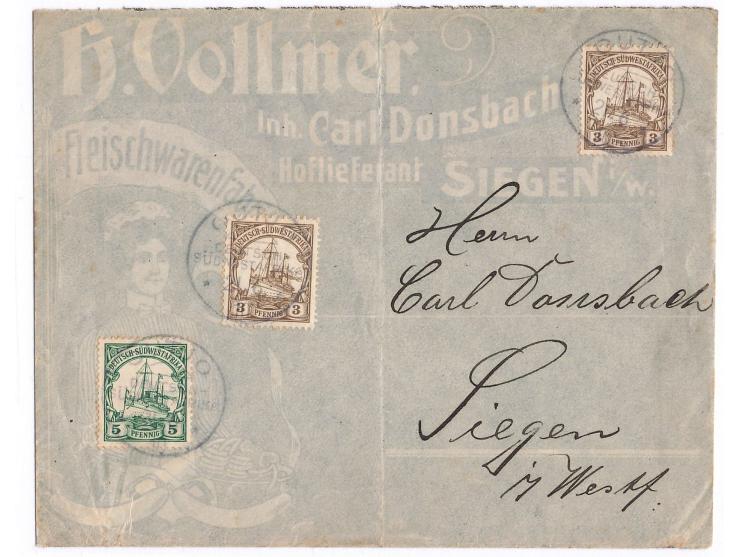 H. Vollmer.
Inh. Carl Donsbach
Hoflieferant
SIEGEN i/w.
Fleischwarenfab
DEUTSCH-SÜDWESTAFRIKA
3 3
PFENNIG
DEUTSCH-SÜDWESTAFRIKA
3 3
PFENNIG
DEUTSCH-SÜDWESTAFRIKA
5 5
PFENNIG
Herrn
Carl Donsbach
Siegen
i/ Westf.